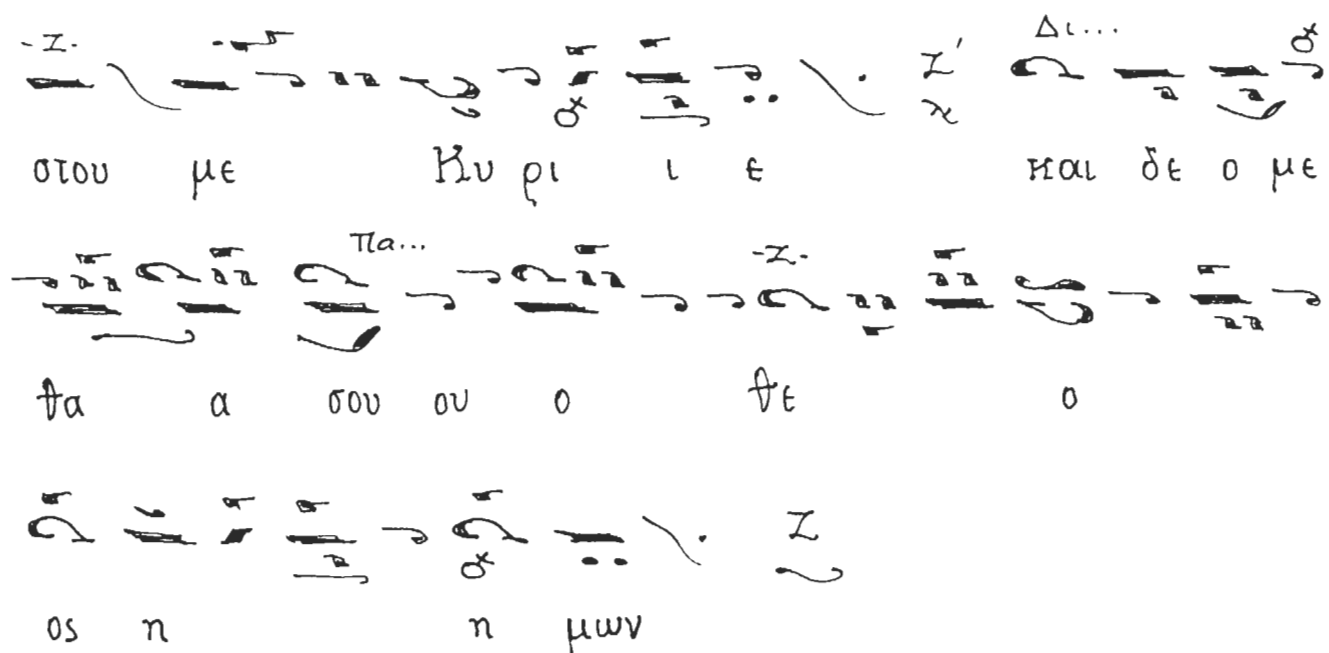 -Z- Z' Δι...
στου με Κυ ρι ι ε και δε ο με
Πα... -Z-
θα α σου ου ο θε ο
Z
ος η η μων